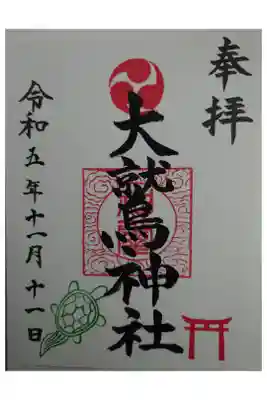 奉拝
大鷲神社
令和五年十一月十一日